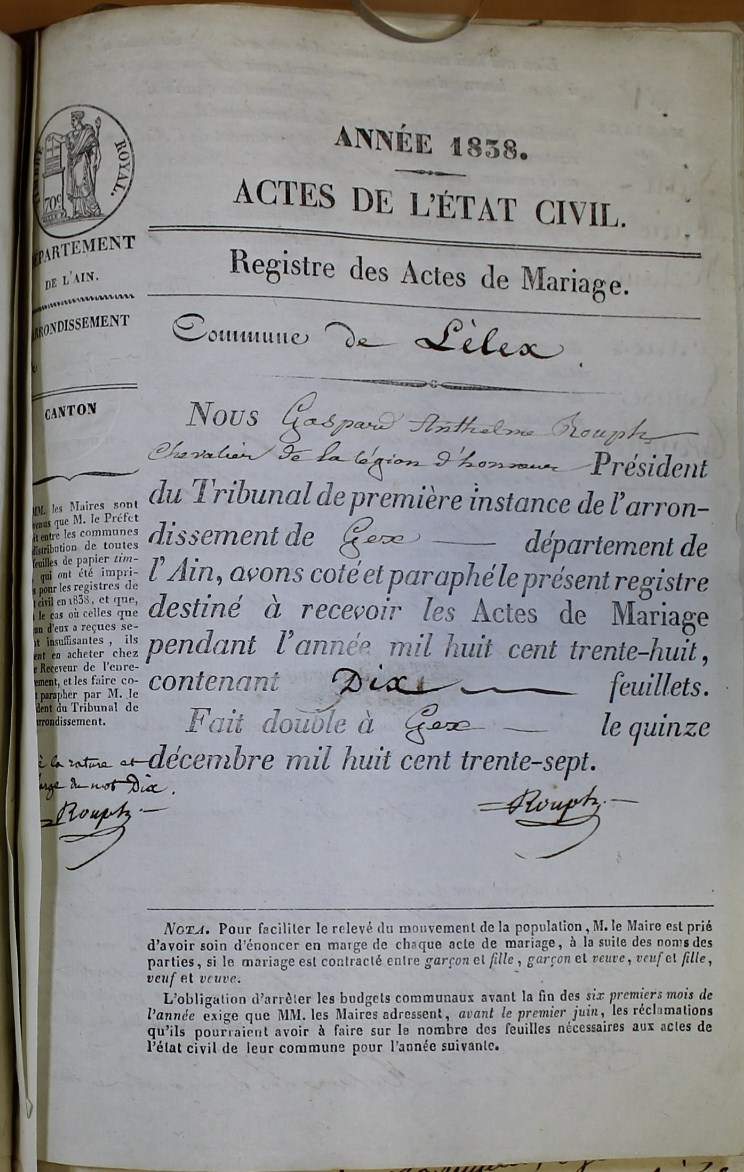 ANNÉE 1838.
ACTES DE L'ÉTAT CIVIL.
Registre des Actes de Mariage.
Commune de Lélex.
ROYAL.
70c
DÉPARTEMENT
DE L'AIN.
ARRONDISSEMENT
CANTON
MM. les Maires sont
que M. le Préfet
entre les communes
distribution de toutes
feuilles de papier tim-
qui ont été impri-
pour les registres de
civil en 1838, et que,
le cas où celles que
un d'eux a reçues se-
insuffisantes, ils
en acheter chez
Receveur de l'enre-
ement, et les faire co-
parapher par M. le
dent du Tribunal de
arrondissement.
la rature et
du mot Dix.
Rouph
Nous Gaspard Anthelme Rouph
Chevalier de la légion d'honneur Président
du Tribunal de première instance de l'arron-
dissement de Gex — département de
l'Ain, avons coté et paraphé le présent registre
destiné à recevoir les Actes de Mariage
pendant l'année mil huit cent trente-huit,
contenant Dix — feuillets.
Fait double à Gex — le quinze
décembre mil huit cent trente-sept.
Rouph
NOTA. Pour faciliter le relevé du mouvement de la population, M. le Maire est prié
d'avoir soin d'énoncer en marge de chaque acte de mariage, à la suite des noms des
parties, si le mariage est contracté entre garçon et fille, garçon et veuve, veuf et fille,
veuf et veuve.
L'obligation d'arrêter les budgets communaux avant la fin des six premiers mois de
l'année exige que MM. les Maires adressent, avant le premier juin, les réclamations
qu'ils pourraient avoir à faire sur le nombre des feuilles nécessaires aux actes de
l'état civil de leur commune pour l'année suivante.